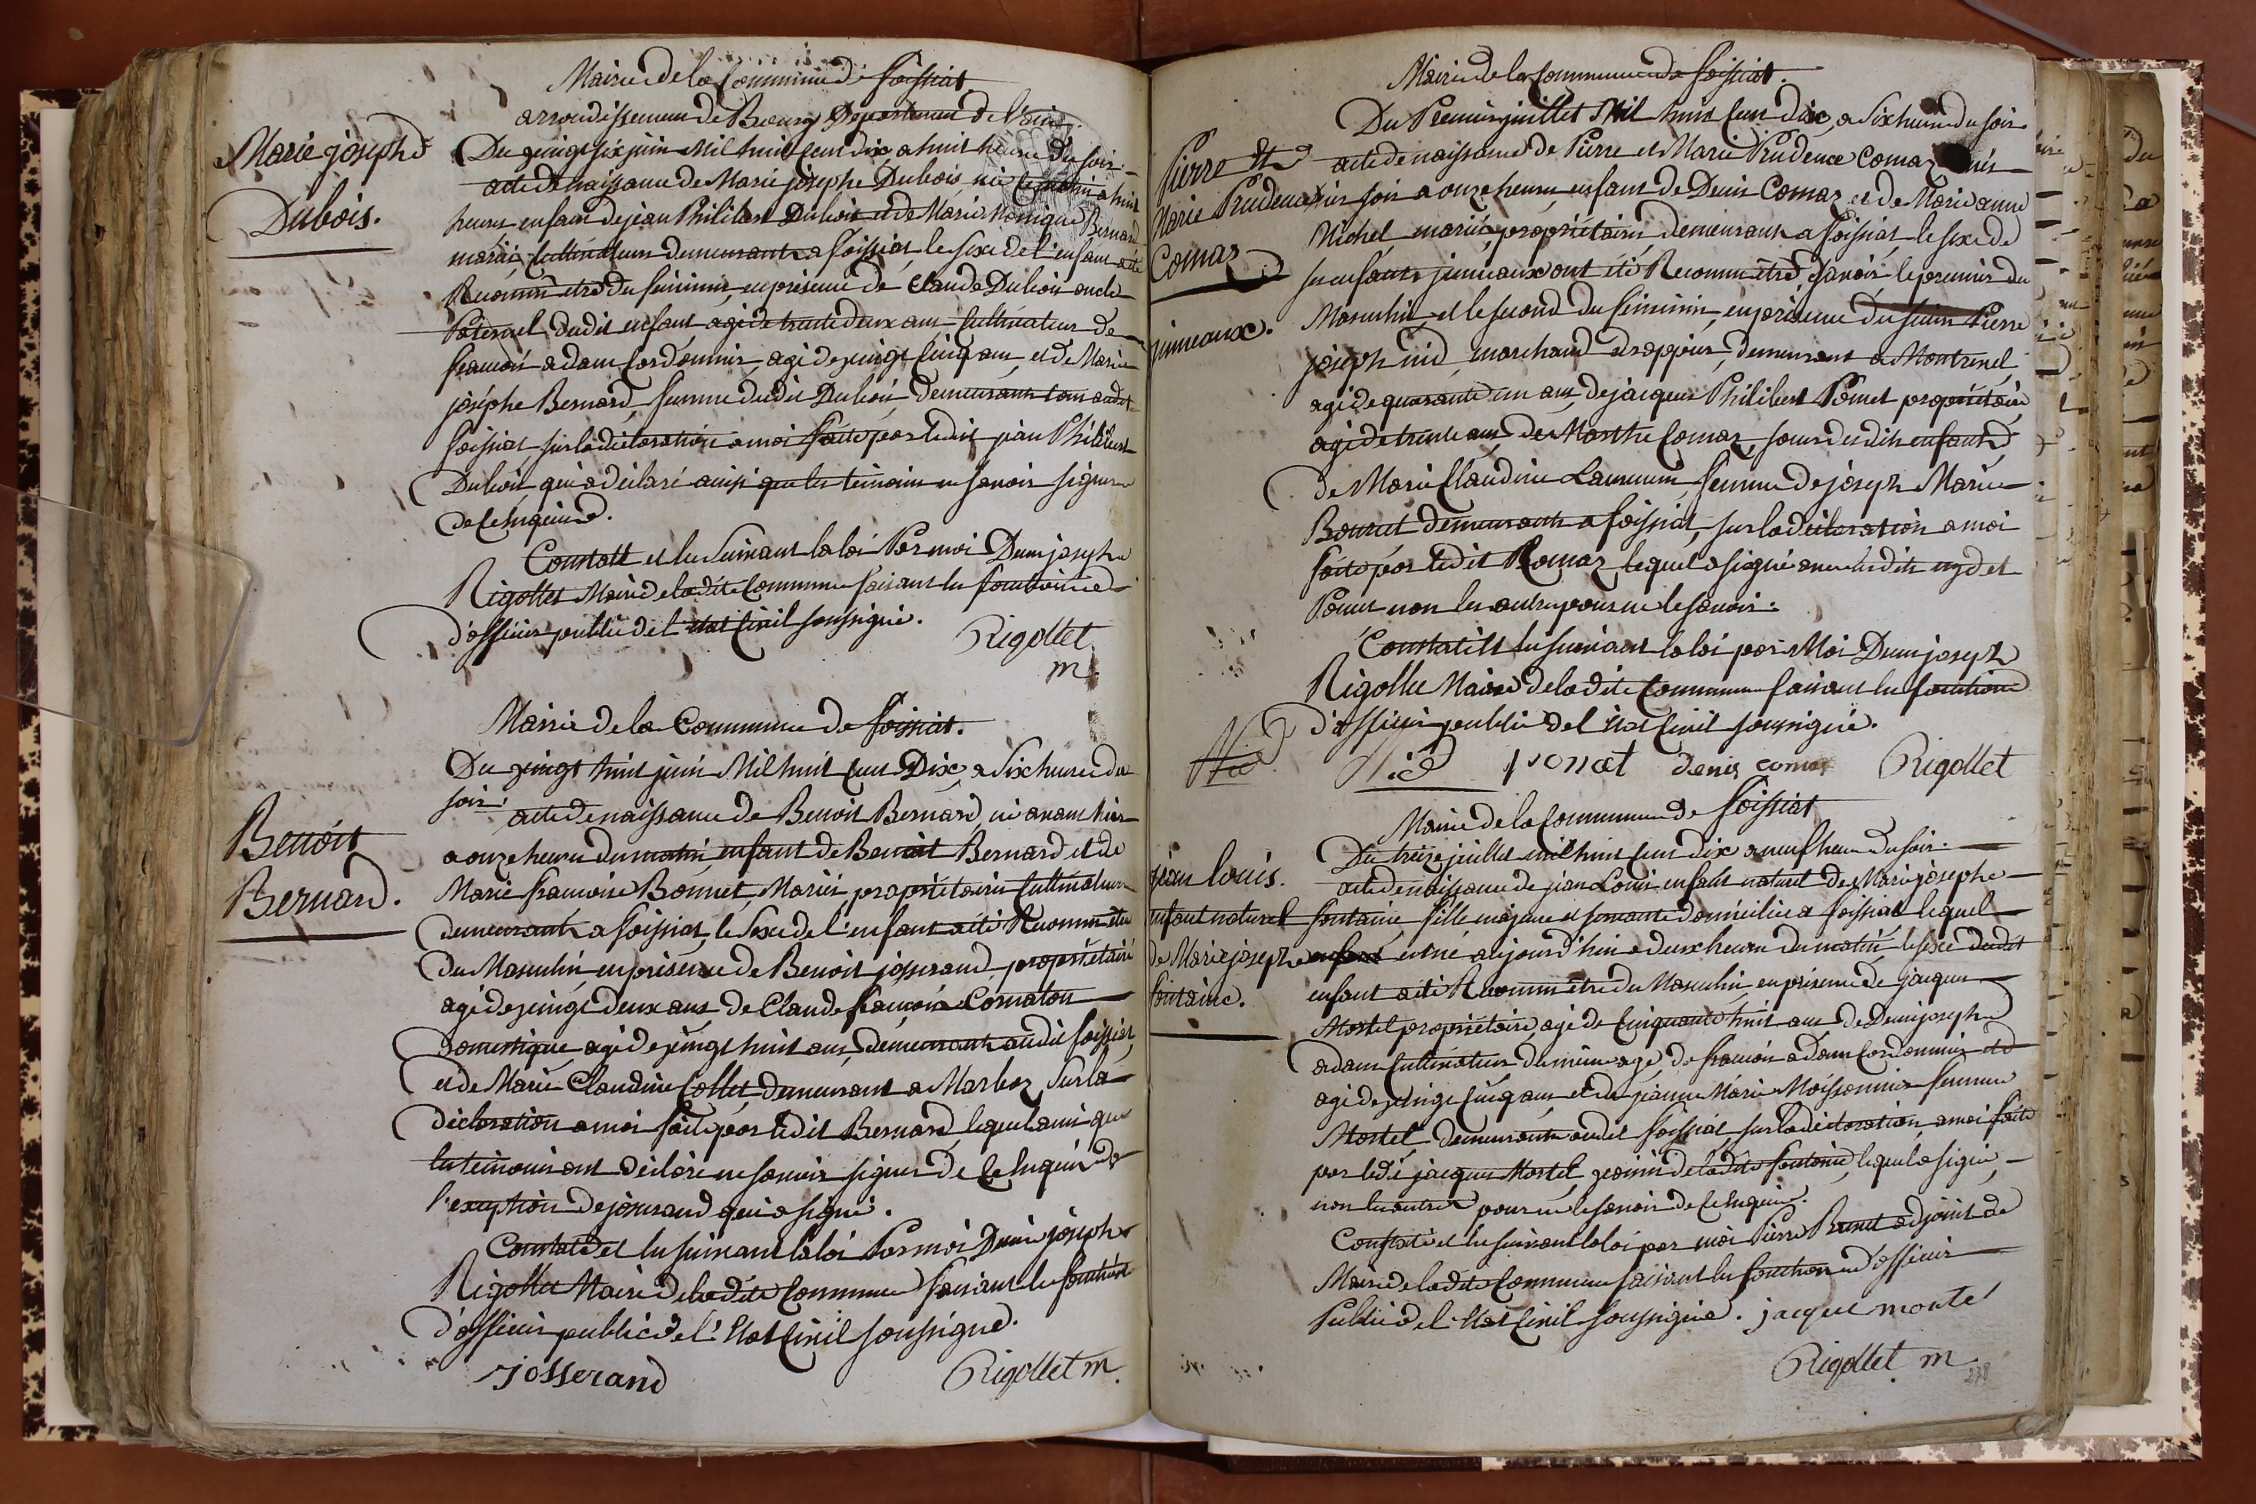 Mairie de la Commune de foissiat
arrondissement de Bourg Departement de l'ain.
Marie josephe
Dubois.
Du vingt six juin mil huit cent dix a huit heures du soir.
acte de naissance de Marie josephe Dubois née le matin a huit
heures enfant de jean Philibert Dubois et de Marie Monique Bernard
mariés cultivateurs demeurants a foissiat, le sexe de l'enfant a été
Reconnu etre du feminin, en présence de Claude Dubois oncle
Paternel dudit enfant agé de trente deux ans, cultivateur de
francois adam Cordonnier, agé de vingt cinq ans, et de Marie
joséphe Bernard, femme dudit Dubois demeurants tous audit
foissiat, sur la déclaration a moi faite par ledit jean Philibert
Dubois qui a déclaré ainsi que les témoins ne savoir signer
de ce enquis.
Constaté et lu suivant la loi Par moi Denis joseph
Rigollet Maire de ladite Commune faisant les fonctions
d'officier public de l'etat Civil soussigné.
Rigollet
m.
Mairie de la Commune de foissiat.
Du vingt huit juin Mil huit cent Dix, a Six heures du
soir.
Benoit
Bernard.
acte de naissance de Benoit Bernard, né avant hier
a onze heures du matin, enfant de Benoit Bernard et de
Marie francoise Bonnet, Mariés, propriétaires Cultivateurs
demeurants a foissiat, le sexe de l'enfant a été Reconnu etre
du Masculin en présence de Benoit josserand propriétaire
agé de vingt deux ans de Claude francois Cornaton
Domestique agé de vingt huit ans, demeurants audit foissiat,
et de Marie Claudine Collet, demeurant a Marboz, Sur la
déclaration a moi faite par ledit Bernard, lequel ainsi que
les temoins ont déclaré ne savoir signer de ce Enquis a
l'exception de josserand qui a signé.
Constaté et lu suivant la loi Par moi Denis joseph
Rigollet Maire de ladite Commune faisant les fonctions
d'officier public de l'etat Civil soussigné.
josserand Rigollet m.
Mairie de la Commune de foissiat.
Du Premier juillet Mil huit cent dix, a Six heures du soir
Pierre et
Marie Prudence
Comaz
jumeaux.
acte de naissance de Pierre et Marie Prudence Comaz nés
hier soir a onze heures, enfants de Denis Comaz et de Marie anne
Michel mariés, propriétaires demeurants a foissiat le sexe de
ses enfants jumeaux ont été Reconnu etre, savoir le premier du
Masculin et le second du féminin, en présence du sieur Pierre
joseph nid marchand drappier, demeurant a Montrevel
agé de quarante un ans de jacques Philibert Ponet propriétaire
agé de trente ans de Marthe Comaz, soeur dudit enfants,
de Marie Claudine Laurencin, femme de joseph Marie
Bouret demeurants a foissiat, sur la déclaration a moi
faite par ledit Comaz lequel a signé avec lesdits nyd et
Ponet non les autres pour ne le savoir.
Constaté et lu suivant la loi par Moi Denis joseph
Rigollet Maire de ladite Commune faisant les fonctions
d'officier public de l'état Civil soussigné.
Nid Nid ponet denis comas Rigollet
Mairie de la Commune de foissiat
Du treize juillet mil huit cent dix a neuf heures du soir.
jean louis.
enfant naturel
de Marie josephe
fontaine.
acte de naissance de jean Louis enfant naturel de Marie josephe
fontaine, fille majeure et servante domiciliée a foissiat lequel
enfant est né aujourd'hui a deux heures du matin le sexe dudit
enfant a été Reconnu etre du Masculin, en présence de jacques
Mortel propriétaire, agé de Cinquante huit ans, de Denis joseph
adam Cultivateur du même age, de francois adam Cordonnier
agé de vingt cinq ans et de jeanne Marie Moissonnier femme
Mortel demeurants audit foissiat, sur la déclaration a moi faite
par ledit jacques Mortel voisin de ladite fontaine, lequel a signé,
non les autres pour ne le savoir de ce Enquis.
Constaté et lu suivant la loi par moi Pierre Brunet adjoint de
Maire de ladite Commune faisant les fonctions d'officier
Public de l'etat Civil soussigné. jacque monté
Rigollet m